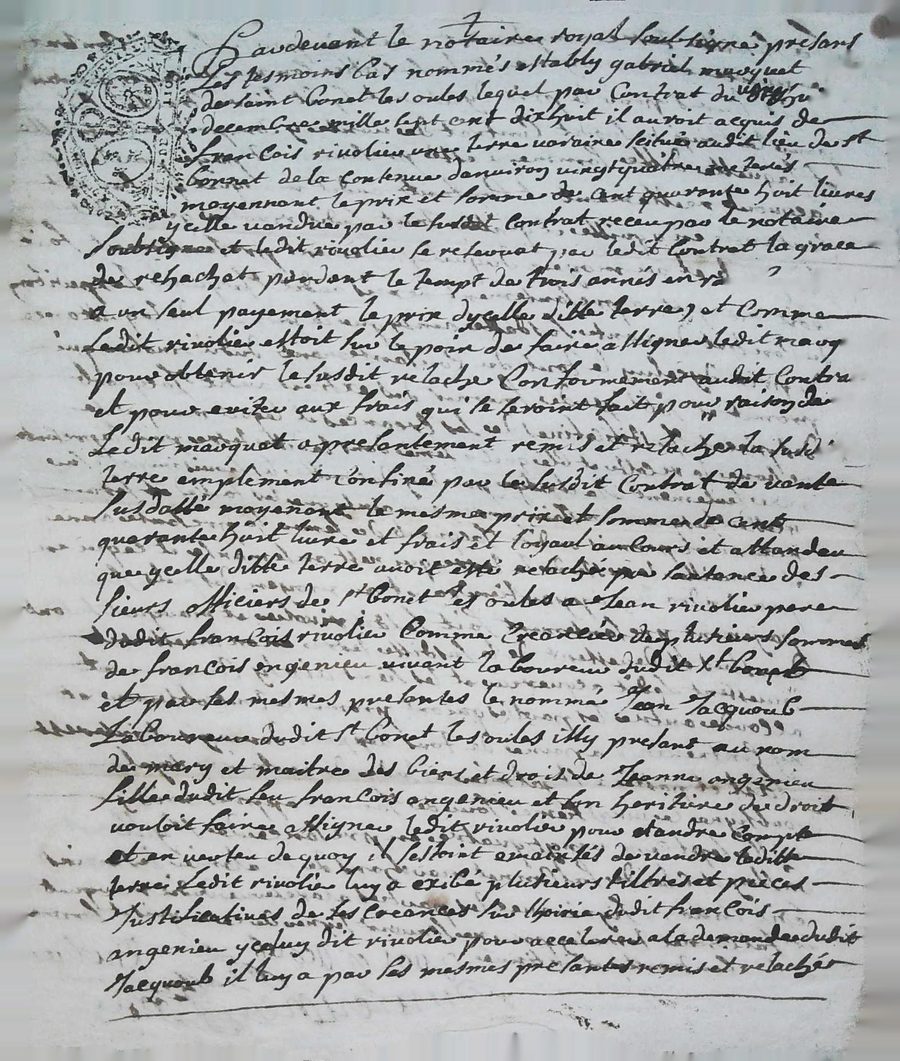 Pardevant le notaire royal soubsigné presans
Les tesmoins bas nommés estably gabriel mauquet
de saint bonet les oules lequel par Contrat du
decembre mille sept cent dixhuit il auroit acquis de
françois rivolier une terre varaine scituée audit lieu de st
bonnet de la contenue danviron vingtquatre
moyennant le prix et somme de cent quarente huit livres
ycelle vandue par le susdit Contrat receu par le notaire
soubsigné et ledit rivolier se reservat par ledit Contrat la grace
de rehachat pendent le tempt de trois annés en
a un seul payement le prix dycelle ditte terre, et Comme
Ledit rivolier estoit sur le poin de faire assigner ledit mauq
pour obtenir le susdit relache Conformement audit Contra
et pour eviter aux frais qui se seroint fait pour raison de
Ledit mauquet a presantement remis et relaché la susd
terre emplement confiné par le susdit Contrat de vante
susdatté moyenant le mesme prix et somme de cent
quarante huit livre et frais et loyaul aucours et attandeu
que ycelle ditte terre avoit esté relaché par santance des
sieurs officiers de st bonet les oules a Jean rivolier pere
dudit françois rivolier Comme Creancier de plusieurs sommes
de françois engenieu vivant laboureur dudit st bonet
et par ses mesmes presantes le nommé Jean Jacquoub
Laboureur dudit st bonet les oules illy presant au nom
de mary et maitre des biens et droit de Jeanne angenieu
fille dudit feu françois angenieu et son heritiere de droit
vouloit faire assigner ledit rivolier pour randre Compte
et en verteu de quoy il sestoint de vandre leditte
terre Ledit rivolier luy a exibé plusieurs tiltres et pieces
Justificatives de ses Creances sur lhoirie dudit françois
angenieu yceluy dit rivolier pour accelerer a la demande dudit
Jacquoub il luy a par ses mesmes presantes remis et relaché